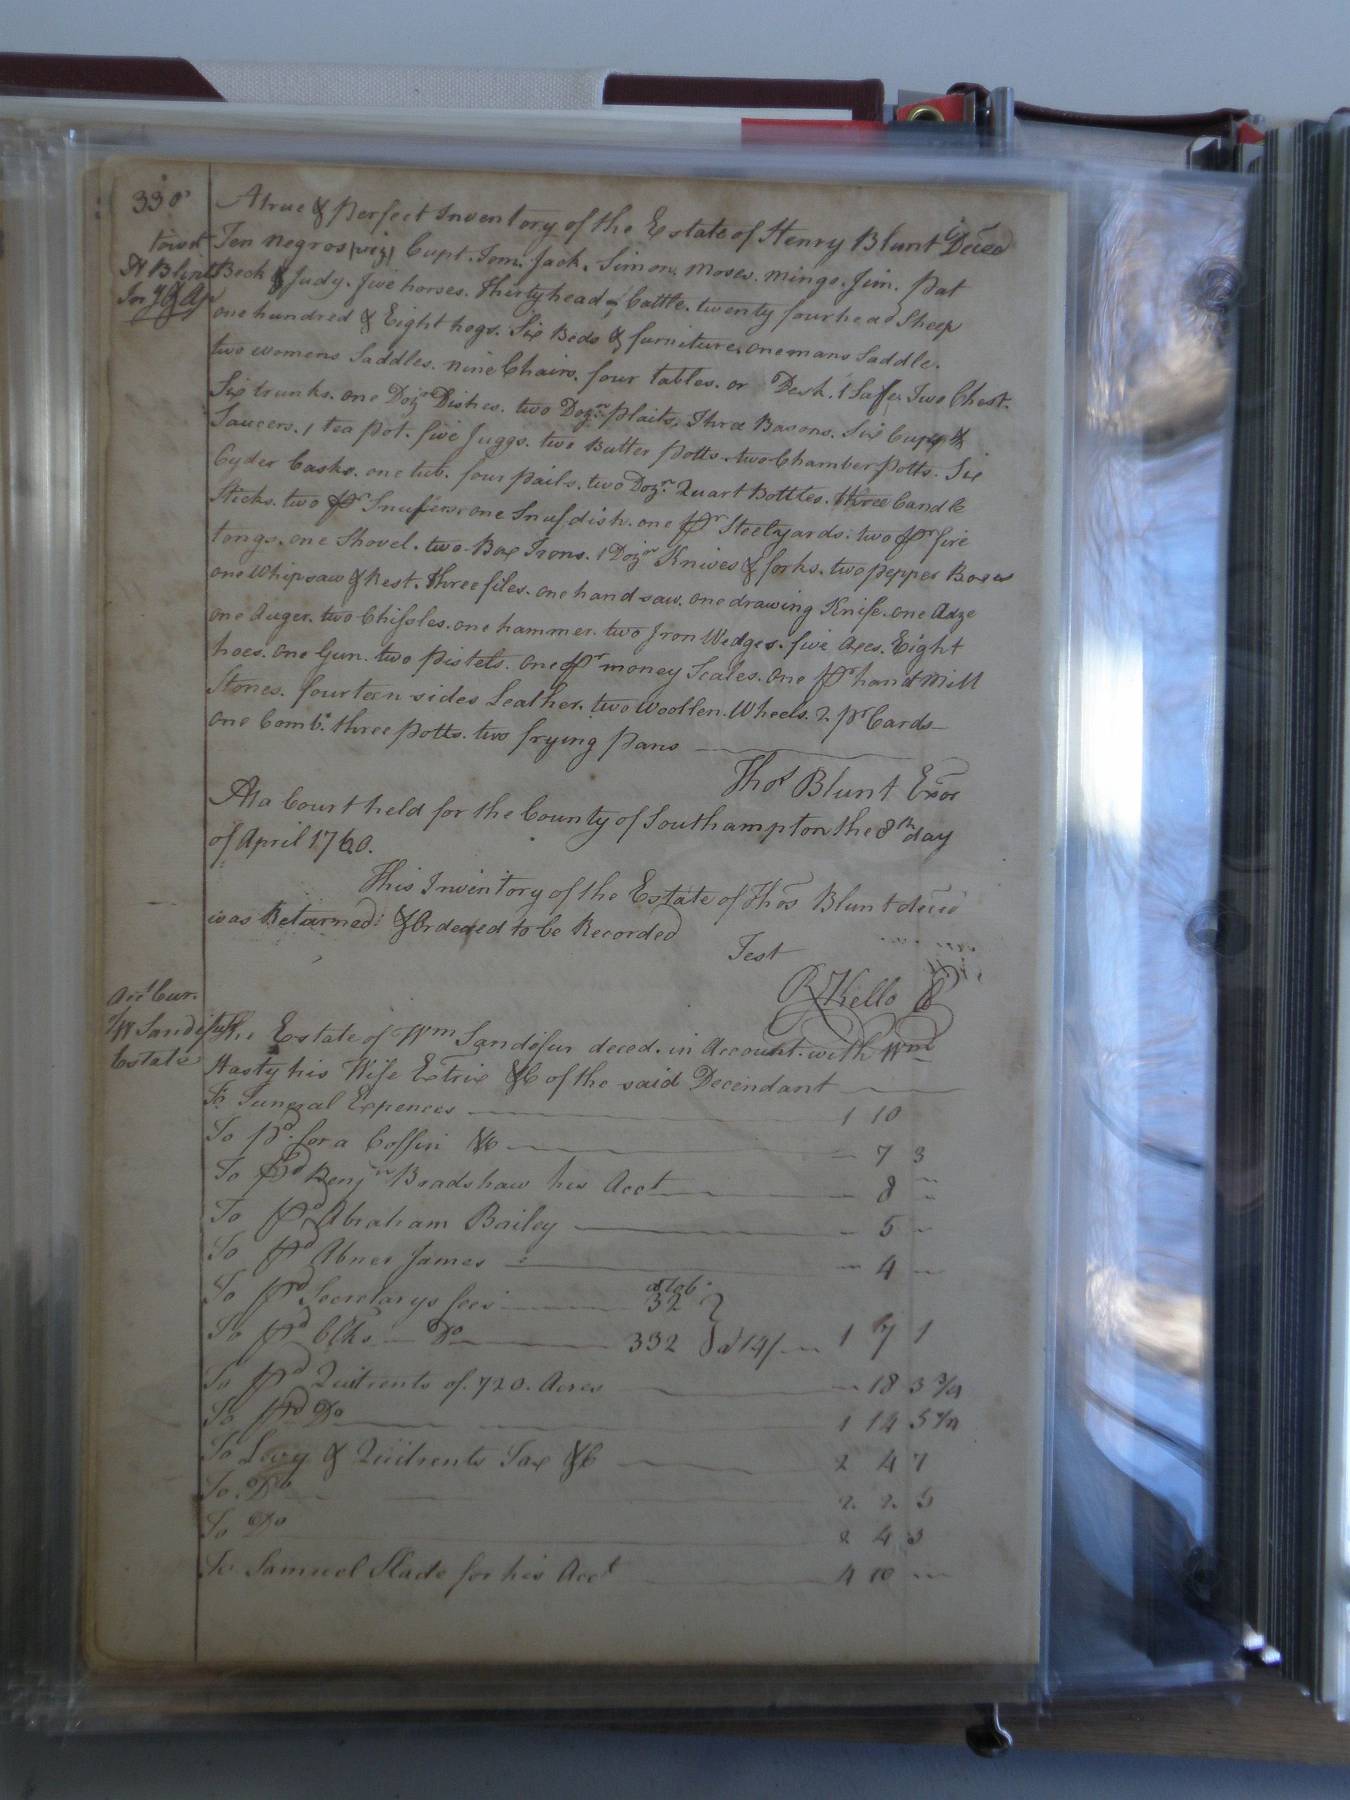 330
A true & perfect Inventory of the Estate of Henry Blunt Deced
towit Ten negros (viz) Cupt. Tom. Jack. Simon. Moses. mingo. Jim. Pat
H Blunt Beck & Judy. five horses. Thirty head of Cattle. twenty four head Sheep
one hundred & Eight hogs. Six Beds & furniture. one mans Saddle.
two womens Saddles. nine Chairs. four tables. or Desk. 1 Safe. Two Chest.
Six trunks. one Dozn Dishes. two Dozn. plaits. Three Basons. Six Cups &
Saucers. 1 tea pot. five Juggs. two Butter potts. two Chamber potts. Six
Cyder Casks. one tub. four pails. two Dozn. Quart Bottles. three Candle
Sticks. two pr Snuffers. one Snufdish. one pr Steelyards. two pr fire
tongs. one Shovel. two Box Irons. 1 Dozn Knives & forks. two pepper Boxes
one Whipsaw & Rest. Three files. one hand saw. one drawing Knife. one Adze
one Auger. two Chissles. one hammer. two Iron Wedges. five Axes. Eight
hoes. one Gun. two pistels. one pr money Scales. one pr hand Mill
Stones. fourteen sides Leather. two Woollen Wheels. 2 pr Cards
one Comb. three potts. two frying pans
Thos Blunt Exor
At a Court held for the County of Southampton the 8th day
of April 1760.
This Inventory of the Estate of Thos Blunt deced
was Returned: & Ordered to be Recorded
Test
R Kello C
Acct Cur.
The Estate of Wm Sandifur deced. in Account with Wm
Estate Hasty his Wife Extrix &C of the said Decendant
To Funeral Expences 1 10
To pd. for a Coffin &C 7 3
To pd Benjn Bradshaw his Acct 8
To pd Abraham Bailey 5
To pd Abner James 4
To pd Secretarys fees 32
To pd Clks Do 332 a 14/ 1 7 1
To pd Quitrents of 720. Acres 18 3 3/4
To pd Do 1 14 5 1/2
To Levy & Quitrents Tax &C 2 4 7
To Do 2. 2. 5
To Do 2 4 3
To Samuel Slade for his Acct 4 10